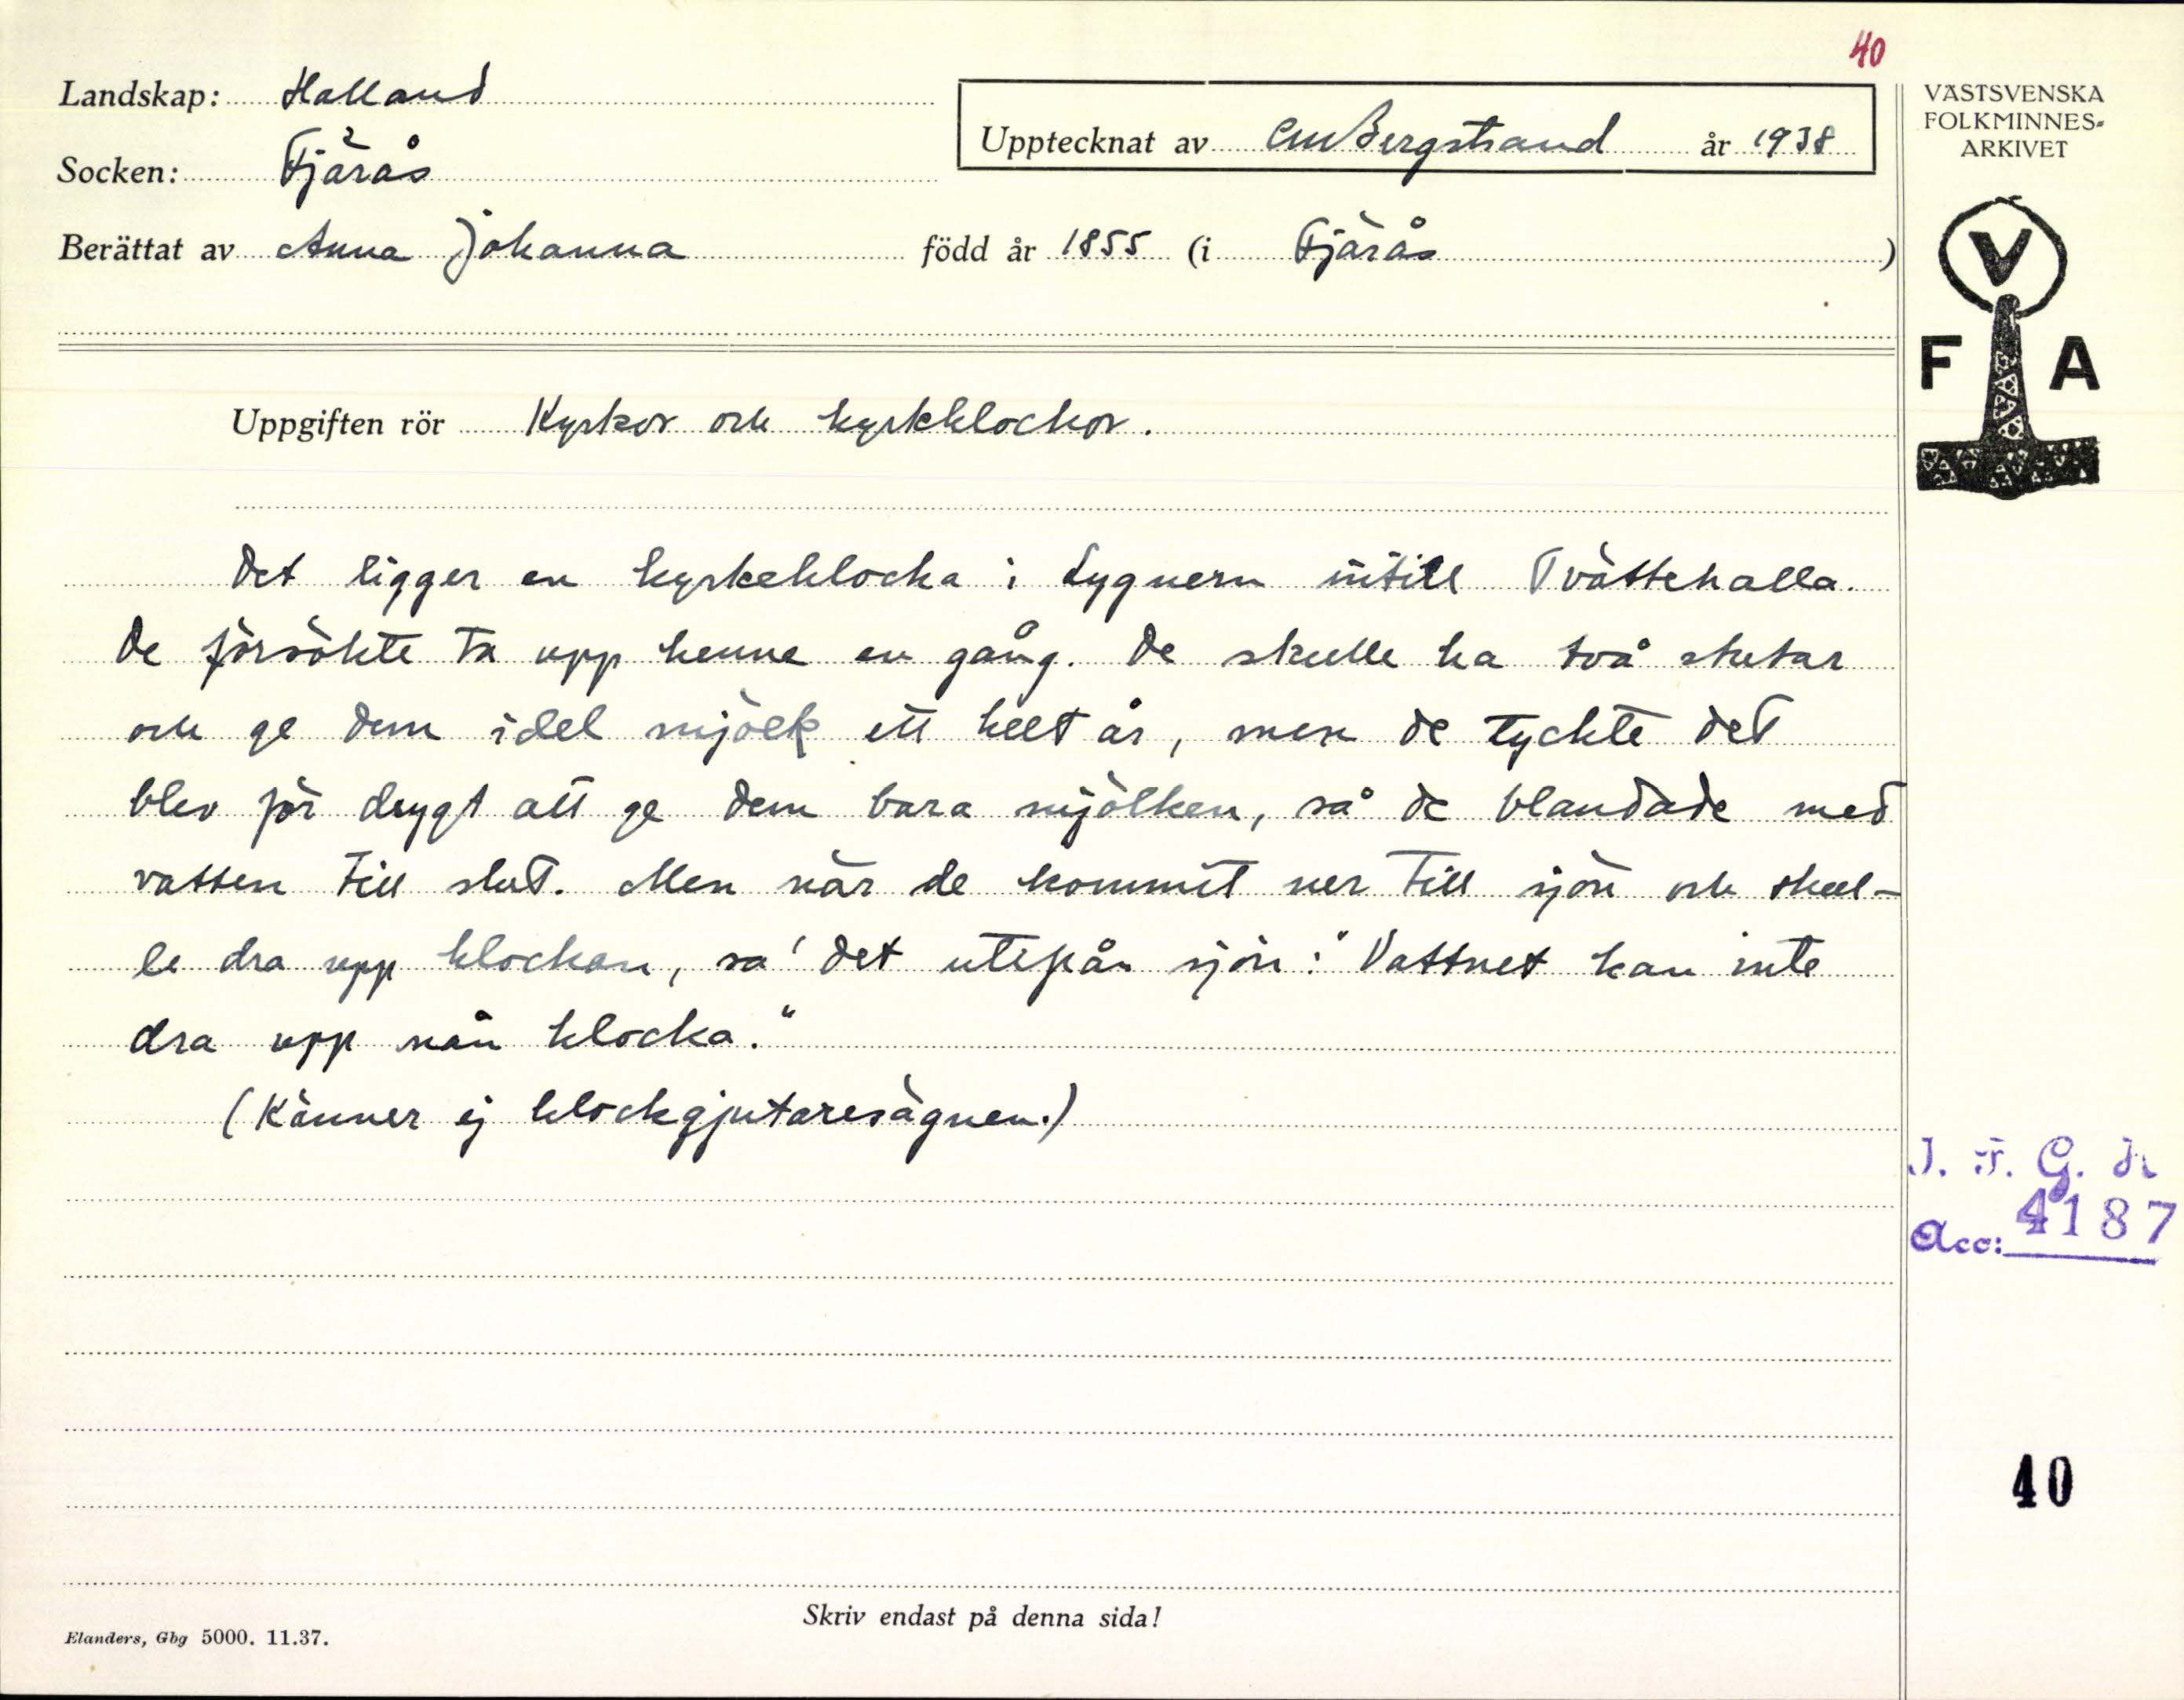 40
Landskap: Halland
Socken: Fjärås
Upptecknat av CMBergstrand år 1938
Berättat av Anna Johanna född år 1855 (i Fjärås)
VÄSTSVENSKA
FOLKMINNES-
ARKIVET
V
F A
Uppgiften rör Kyrkor och kyrkklockor.
Det ligger en kyrkeklocka i Lygnern intill Tvättehalla.
De försökte ta upp henne en gång. De skulle ha två stutar
och ge dem idel mjölk ett helt år, men de tyckte det
blev för drygt att ge dem bara mjölken, så de blandade med
vatten till slut. Men när de kommit ner till sjön och skul-
le dra upp klockan, sa' det utifrån sjön: "Vattnet kan inte
dra upp nån klocka."
(Känner ej klockgjutaresägnen.)
Acc: 4187
40
Skriv endast på denna sida!
Elanders, Gbg 5000. 11.37.